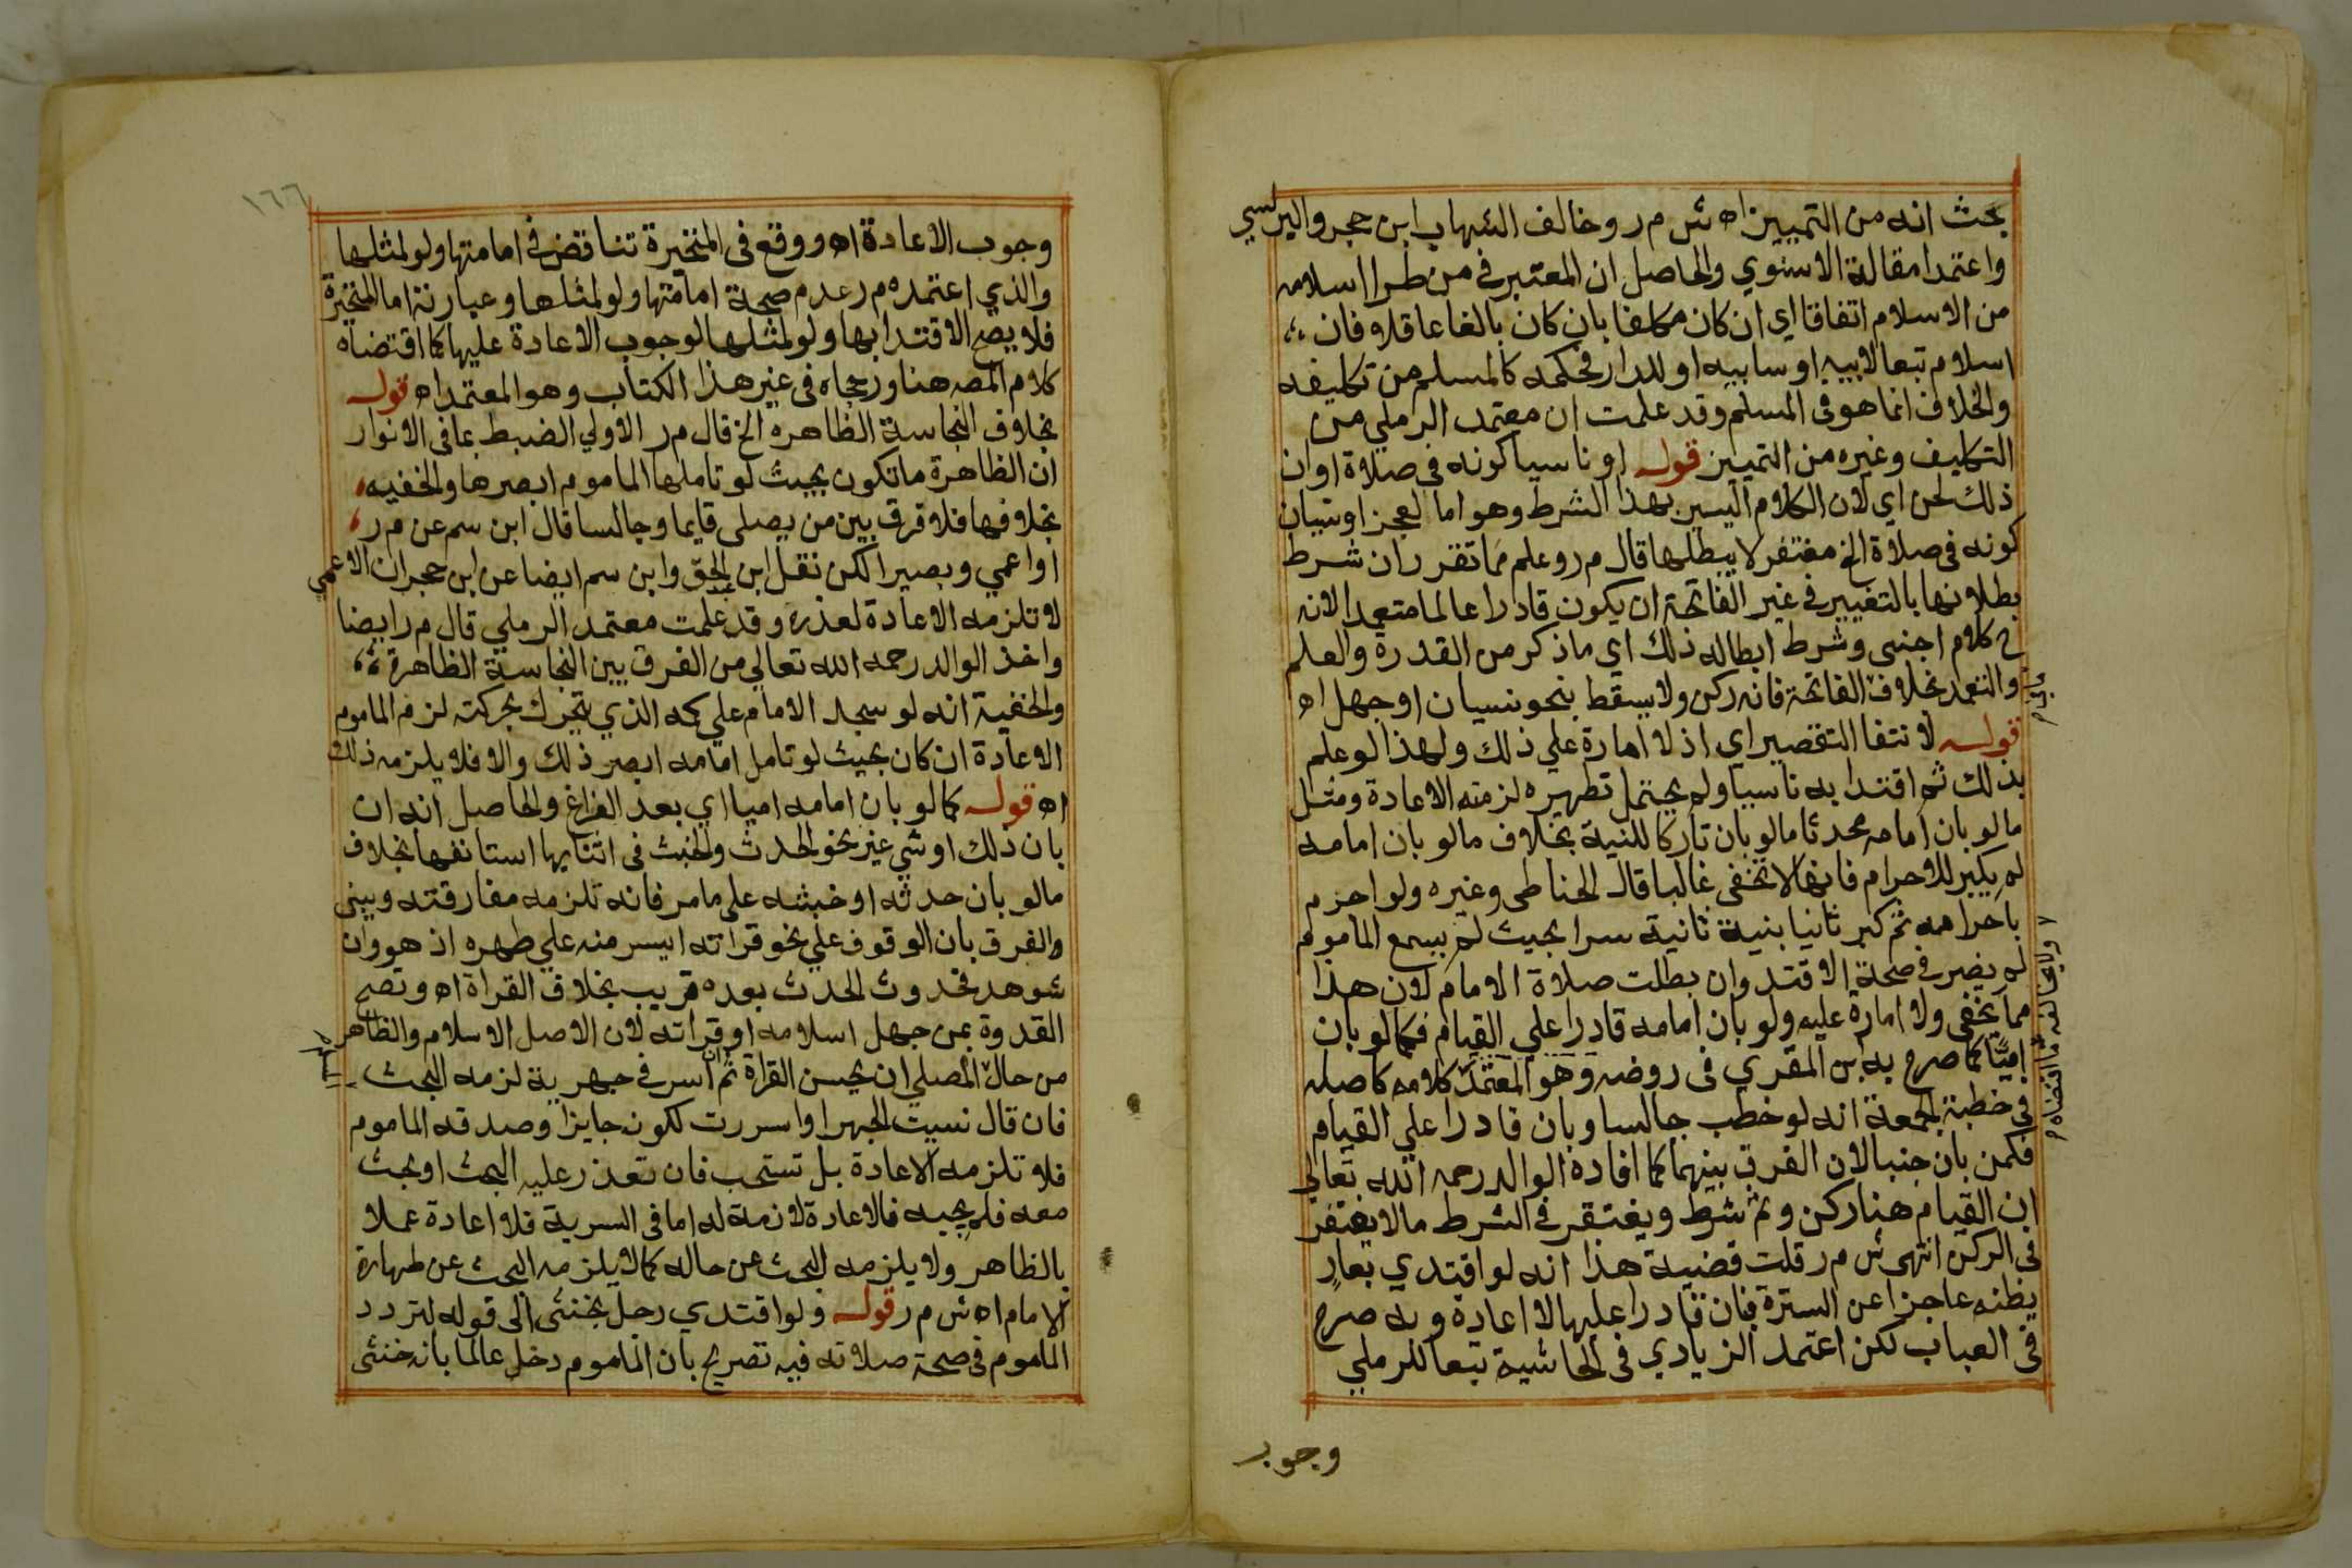 بحث انه من التمييز اه ش م ر وخالف الشهاب ابن حجر والبرلسي
واعتمدا مقالة الاسنوي والحاصل ان المعتبر في من طرا اسلامه
من الاسلام اتفاقا اي ان كان مكلفا بان كان بالغا عاقلا فان
اسلام تبعا لابيه او سابيه او للدار فحكمه كالمسلم من تكليفه
والخلاف انما هو في المسلم وقد علمت ان معتمد الرملي من
التكليف وغيره من التمييز قوله او ناسيا كونه في صلاة او ان
ذلك لحن اي لان الكلام اليسير بهذا الشرط وهو اما لعجز او نسيان
كونه في صلاة الخ مغتفر لا يبطلها قال م ر وعلم مما تقرر ان شرط
بطلانها بالتغيير في غير الفاتحة ان يكون قادرا عالما متعمدا لانه
ح كلام اجنبي وشرط ابطاله ذلك اي ما ذكر من القدرة والعلم
والتعمد بخلاف الفاتحة فانه ركن ولا يسقط بنحو نسيان او جهل اه
قوله لانتفا التقصير اي اذ لا امارة علي ذلك ولهذا لو علم
بذلك ثم اقتدا به ناسيا ولم يحتمل تطهيره لزمته الاعادة ومثل
ما لو بان امامه محدثا ما لو بان تاركا للنية بخلاف ما لو بان امامه
لم يكبر للاحرام فانها لا تخفى غالبا قال الحناطي وغيره ولو احرم
باحرامه ثم كبر ثانيا بنية ثانية سرا بحيث لم يسمع الماموم
لم يضر في صحة الاقتدا وان بطلت صلاة الامام لان هذا
مما يخفى ولا امارة عليه ولو بان امامه قادرا علي القيام فكما لو بان
اميا كما صرح به بن المقري في روضه وهو المعتمد كلامه كاصله
في خطبة الجمعة انه لو خطب جالسا وبان قادرا علي القيام
فكمن بان جنبا لان الفرق بينهما كما افاده الوالد رحمه الله تعالى
ان القيام هنا ركن وثم شرط ويغتفر في الشرط ما لا يغتفر
في الركن انتهى ش م ر قلت قضية هذا انه لو اقتدي بعار
يظنه عاجزا عن السترة فبان قادرا عليها لا اعادة وبه صرح
في العباب لكن اعتمد الزيادي في الحاشية تبعا للرملي
وجوب
١٦٦
وجوب الاعادة اه ووقع في المتحيرة تناقض في امامتها ولو لمثلها
والذي اعتمده م ر عدم صحة امامتها ولو لمثلها وعبارته اما المتحيرة
فلا يصح الاقتدا بها ولو لمثلها لوجوب الاعادة عليها كما اقتضاه
كلام المصه هنا ورجحاه في غير هذا الكتاب وهو المعتمد اه قوله
بخلاف النجاسة الظاهره الخ قال م ر الاولي الضبط بما في الانوار
ان الظاهرة ما تكون بحيث لو تاملها الماموم ابصرها والخفيه
بخلافها فلا فرق بين من يصلي قايما وجالسا قال ابن سم عن م ر
او اعمي وبصيرا لكن نقل ابن عبد الحق وابن سم ايضا عن ابن حجر ان الاعمي
لا تلزمه الاعادة لعذره وقد علمت معتمد الرملي قال م ر ايضا
واخذ الوالد رحمه الله تعالي من الفرق بين النجاسة الظاهرة
والخفية انه لو سجد الامام علي كمه الذي يتحرك بحركته لزم الماموم
الاعادة ان كان بحيث لو تامل امامه ابصر ذلك والا فلا يلزمه ذلك
اه قوله كما لو بان امامه اميا اي بعد الفراغ والحاصل انه ان
بان ذلك او شي غير نحو الحدث والخبث في اثنايها استانفها بخلاف
ما لو بان حدثه او خبثه علي ما مر فانه تلزمه مفارقته ويبنى
والفرق بان الوقوف علي نحو قراته ايسر منه علي طهره اذ هو وان
شوهد فحدوث الحدث بعده قريب بخلاف القراة اه وتصح
القدوة بمن جهل اسلامه او قراته لان الاصل الاسلام والظاهر
من حال المصلي ان يحسن القراة ثم ان اسر في جهرية لزمه البحث
فان قال نسيت الجهر او اسررت لكونه جايزا وصدقه الماموم
فلا تلزمه الاعادة بل تستحب فان تعذر عليه البحث او بحث
معه فلم يجبه فالاعادة لازمة له اما في السرية فلا اعادة عملا
بالظاهر ولا يلزمه البحث عن حاله كما لا يلزمه البحث عن طهارة
الامام اه ش م ر قوله ولو اقتدي رجل بخنثى الى قوله لتردد
الماموم في صحة صلاته فيه تصريح بان الماموم دخل عالما بانه خنثى